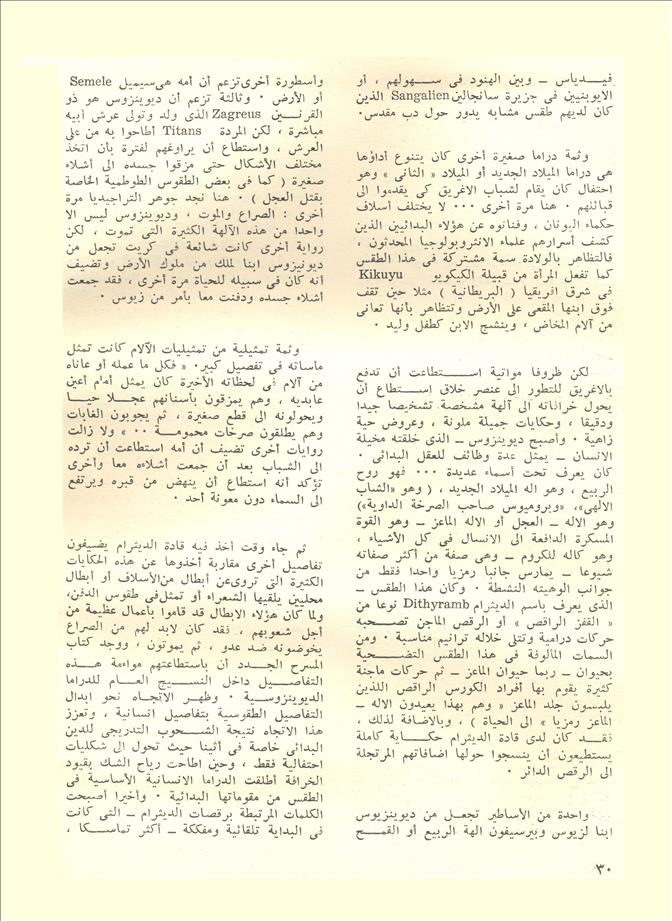 فيـديـاس ــ وبين الهنود فى سـهولهم ، أو
الايوبنيين فى جزيرة سانجالين Sangalien الذين
كان لديهم طقس مشابه يدور حول دب مقدس.
وثمة دراما صغيرة أخرى كان يتنوع أداؤها
هى دراما الميلاد الجديد أو الميلاد « الثانى » وهو
احتفال كان يقام لشباب الاغريق كى يقدموا الى
قبائلهم . هنا مرة أخرى ٠٠٠ لا يختلف أسلاف
حكماء اليونان ، وفنانوه عن هؤلاء البدائيين الذين
كشف أسرارهم علماء الانثروبولوجيا المحدثون ،
فالتظاهر بالولادة سمة مشتركة فى هذا الطقس
كما تفعل المرأة من قبيلة الكيكويو Kikuyu
فى شرق افريقيا ( البريطانية ) مثلا حين تقف
فوق ابنها المقعى على الأرض وتتظاهر بأنها تعانى
من آلام المخاض ، وينشج الابن كطفل وليد .
لكن ظروفا مواتية اسـتطاعت أن تدفع
بالاغريق للتطور الى عنصر خلاق اسـتطاع أن
يحول خرافاته الى آلهة مشخصة تشخيصا جيدا
ودقيقا ، وحكايات جميلة ملونة ، وعروض حية
زاهية . وأصبح ديونيزوس ــ الذى خلقته مخيلة
الانسان ــ يمثل عدة وظائف للعقل البدائى .
كان يعرف تحت أسماء عديدة ٠٠٠ فهو روح
الربيع ، وهو اله الميلاد الجديد ، ( وهو «الشاب
الالهى»، «وبروميوس صاحب الصرخة الداوية»)
وهو الاله ــ العجل أو الاله الماعز ــ وهو القوة
المسكرة الدافعة الى الانسال فى كل الأشياء ،
وهو كاله للكروم ــ وهى صفة من أكثر صفاته
شيوعا ــ يمارس جانبا رمزيا واحدا فقط من
جوانب الوهيته النشطة . وكان هذا الطقس ــ
الذى يعرف باسم الديثرام Dithyramb نوعا من
« القفز الراقص » أو الرقص الماجن تصـحبه
حركات درامية وتتلى خلاله ترانيم مناسبة . ومن
السمات المألوفة فى هذا الطقس التضـحية
بحيوان ــ ربما حيوان الماعز ــ ثم حركات ماجنة
كثيرة يقوم بها أفراد الكورس الراقص اللذين
يلبسون جلد الماعز « وهم بهذا يعيدون الاله ــ
الماعز رمزيا » الى الحياة ) ، وبالاضافة لذلك ،
نقـد كان لدى قادة الديثرام حكـاية كاملة
يستطيعون أن ينسجوا حولها اضافاتهم المرتجلة
الى الرقص الدائر .
وواحدة من الأساطير تجعـل من ديونيزيوس
ابنا لزيوس وبيرسيفون الهة الربيع أو القمـح
وأسطورة أخرى تزعم أن أمه هى سيميل Semele
أو الأرض . وثالثة تزعم أن ديوينزوس هو ذو
القرنـين Zagreus الذى ولد وتولى عرش أبيه
مباشرة ، لكن المردة Titans أطاحوا به من على
العرش ، واستطاع أن يراوغهم لفترة بأن اتخذ
مختلف الأشكال حتى مزقوا جسده الى أشلاء
صغيرة ( كما فى بعض الطقوس الطوطمية الخاصة
بقتل العجل ) . هنا نجد جوهر التراجيديا مرة
أخرى : الصراع والموت ، وديوينزوس ليس الا
واحدا من هذه الآلهة الكثيرة التى تموت ، لكن
رواية أخرى كانت شائعة فى كريت تجعل من
ديونيزوس ابنا لملك من ملوك الأرض وتضيف
أنه كان فى سبيله للحياة مرة أخرى ، فقد جمعت
أشلاء جسده ودفنت معا بأمر من زيوس .
وثمة تمثيلية من تمثيليات الآلام كانت تمثل
مأساته فى تفصيل كبير. « فكل ما عمله أو عاناه
من آلام فى لحظاته الأخيرة كان يمثل أمام أعين
عابديه ، وهم يمزقون بأسنانهم عجـلا حيـا
ويحولونه الى قطع صغيرة ، ثم يجوبون الغابات
وهم يطلقون صرخات محمومـة ٠٠ » ولا زالت
روايات أخرى تضيف أن أمه استطاعت أن ترده
الى الشباب بعد أن جمعت أشلاءه معا وأخرى
تؤكد أنه استطاع أن ينهض من قبره ويرتفع
الى السماء دون معونة أحد .
ثم جاء وقت أخذ فيه قادة الديثرام يضيفون
تفاصيل أخرى مقاربة أخذوها عن هذه الحكايات
الكثيرة التى تروى عن أبطال من الأسلاف أو أبطال
محليين يلقيها الشعراء أو تمثل فى طقوس الدفن،
ولما كان هؤلاء الابطال قد قاموا بأعمال عظيمة من
أجل شعوبهم ، فقد كان لابد لهم من الصراع
يخوضونه ضد عدو ، ثم يموتون ، ووجد كتاب
المسرح الجـدد أن باستطاعتهم مواءمة هـذه
التفاصـيل داخل النسـيج العـام للدراما
الديونيزوسـية . وظهـر الاتجـاه نحو ابدال
التفاصيل الطقوسية بتفاصيل انسانية ، وتعزز
هذا الاتجاه نتيجة الشـحوب التدريجى للدين
البدائى خاصة فى أثينا حيث تحول الى شكليات
احتفالية فقط ، وحين اطاحت رياح الشك بقيود
الخرافة أطلقت الدراما الانسانية الأساسية فى
الطقس من مقوماتها البدائية . وأخيرا أصبحت
الكلمات المرتبطة برقصات الديثرام ــ التى كانت
فى البداية تلقائية ومفككة ــ أكثر تماسـكا ،
٣٠